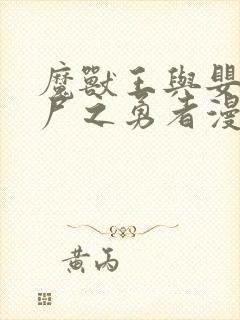 魔獸王與嬰
尸之勇者漫
黃丙